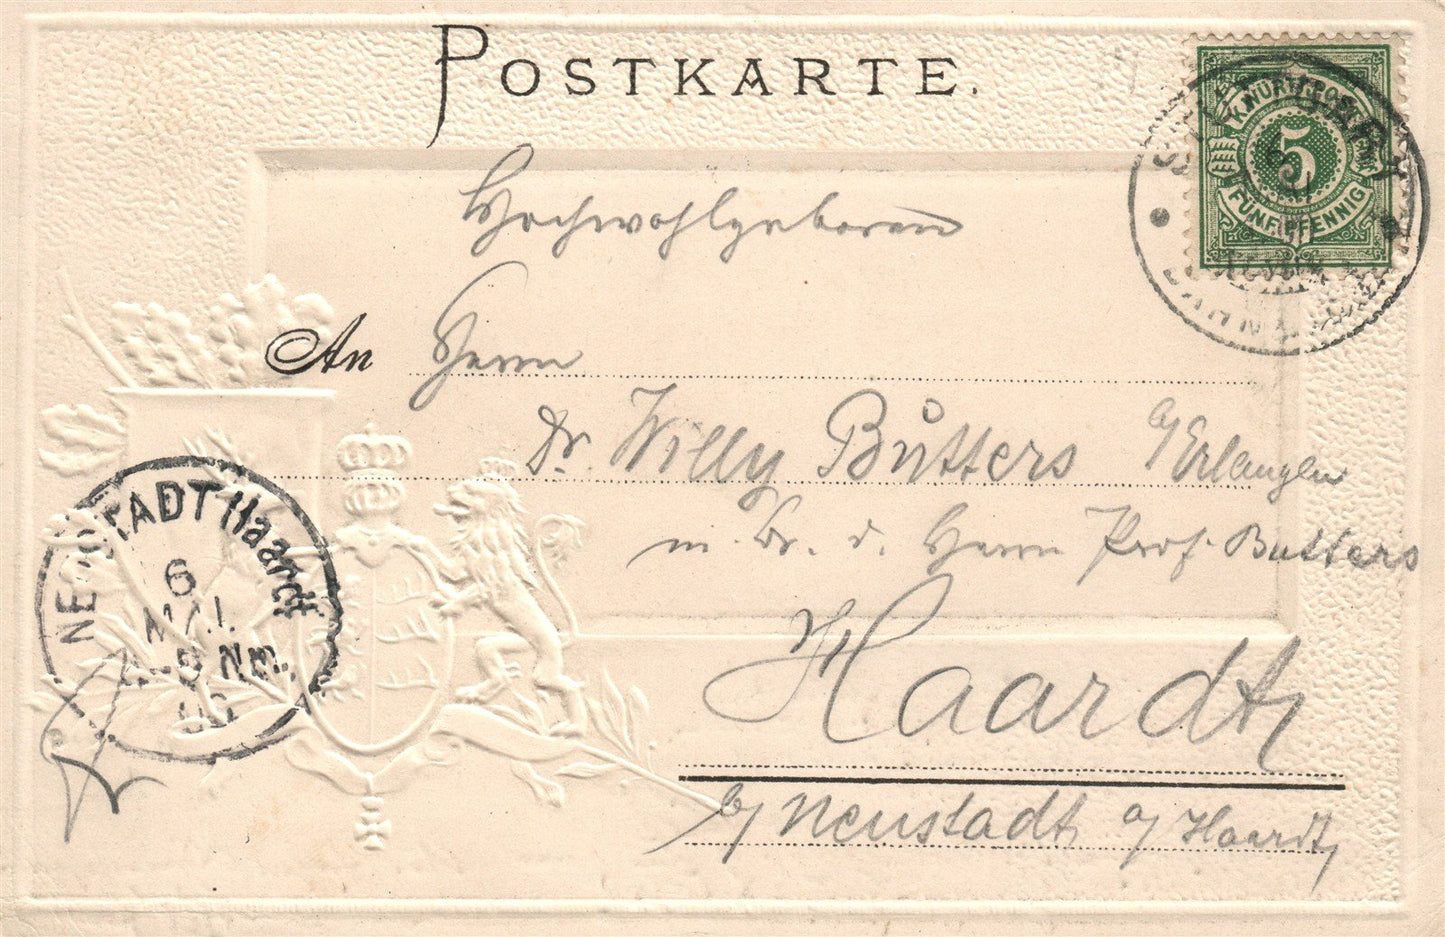 POSTKARTE.
K. WÜRTT. POST
5
FÜNF PFENNIG
STUTTGART
Hochwohlgeboren
An Herrn
Dr. Willy Bütters a/Erlangen
m. Br. d. Herrn Prof. Butters
Haardt
b/ Neustadt a/ Haardt
NEUSTADT (Haardt
6
MAI.
Nm.